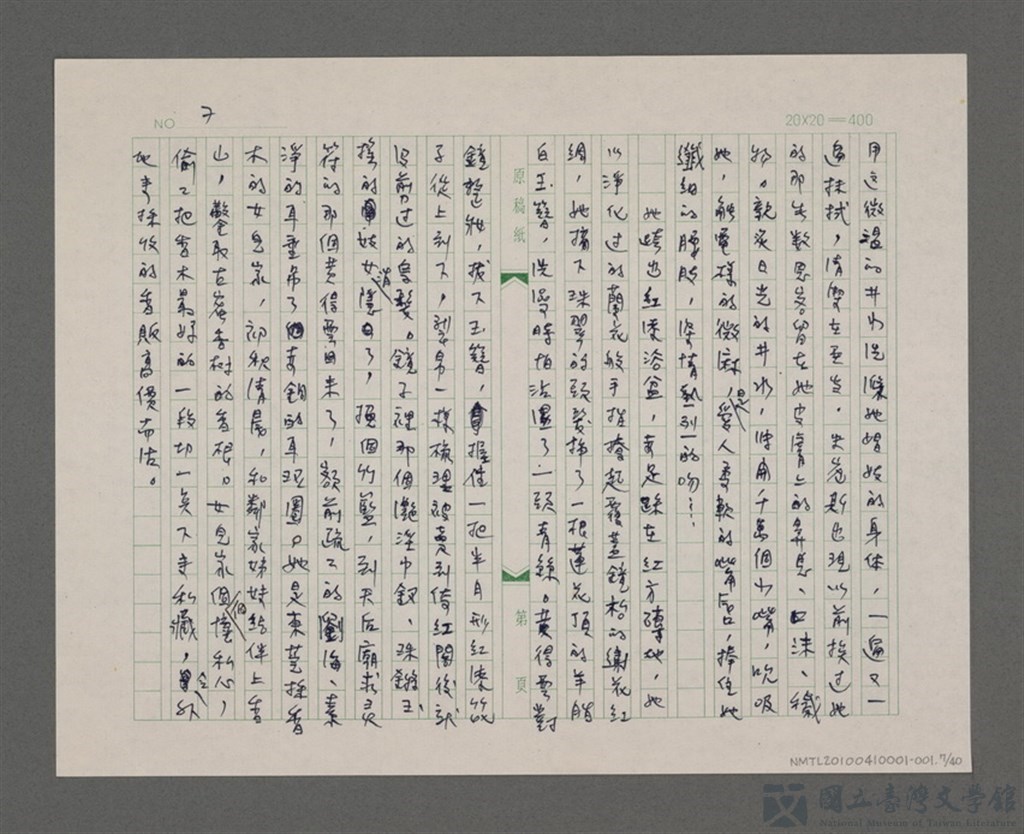 NO 7
20X20=400
用這微溫的井水洗滌她婚妓的身体，一遍又一
遍抹拭，清潔在至生．史密斯出現以前挨過她
的那無數恩客留在她皮膚上的鼻息、口沫、穢
物。就炙日光的井水，伸用千萬個小嘴，吮吸
她，觸電樣的微麻，是愛人柔軟的嘴唇，捧住她
纖細的腰肢，深情熱烈的吻⋯⋯
她跨出紅漆浴盆，赤足踩在紅方磚地，她
以淨化过的蘭花般手指撩起覆蓋鏡枱的繡花紅
綢，她摘下珠翠的頭髮插了一根蓮花頂的羊脂
白玉簪，洗浴時怕沾濕了一頭青絲。黃得雲對
原稿紙
第 頁
鏡整妝，拔下玉簪，握住一把半月形紅漆篦
子從上到下，梨帛一樣梳理被賣到倚紅閣後就
沒剪过的烏髮。鏡子裡那個灩淫巾釵、珠鎦玉
搖的妓女消隱了，換個竹籃，到天后廟求灵
符的那個黃得雲回來了，額前疏疏的劉海、素
淨的耳垂吊了黃銅的耳環圈。她是東莞採香
木的女兒家，初秋清晨，和鄰家姊妹結伴上香
山，鑿取古蜜香樹的香根。女兒家個個懷私心，
偷偷把香木最好的一段切一角下來私藏，令外
地來採收的香販高價南沽。
NMTL20100410001-001.7/40
國立臺灣文學館
National Museum of Taiwan Literature